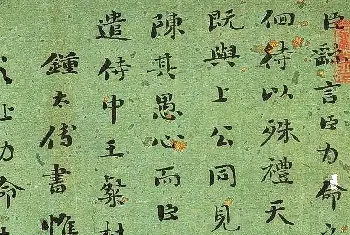 臣繇言臣力命之
佪待以殊禮天
既與上公同見
陳其愚心而臣
遣侍中王粲杜
鍾太傅書惟
上力命